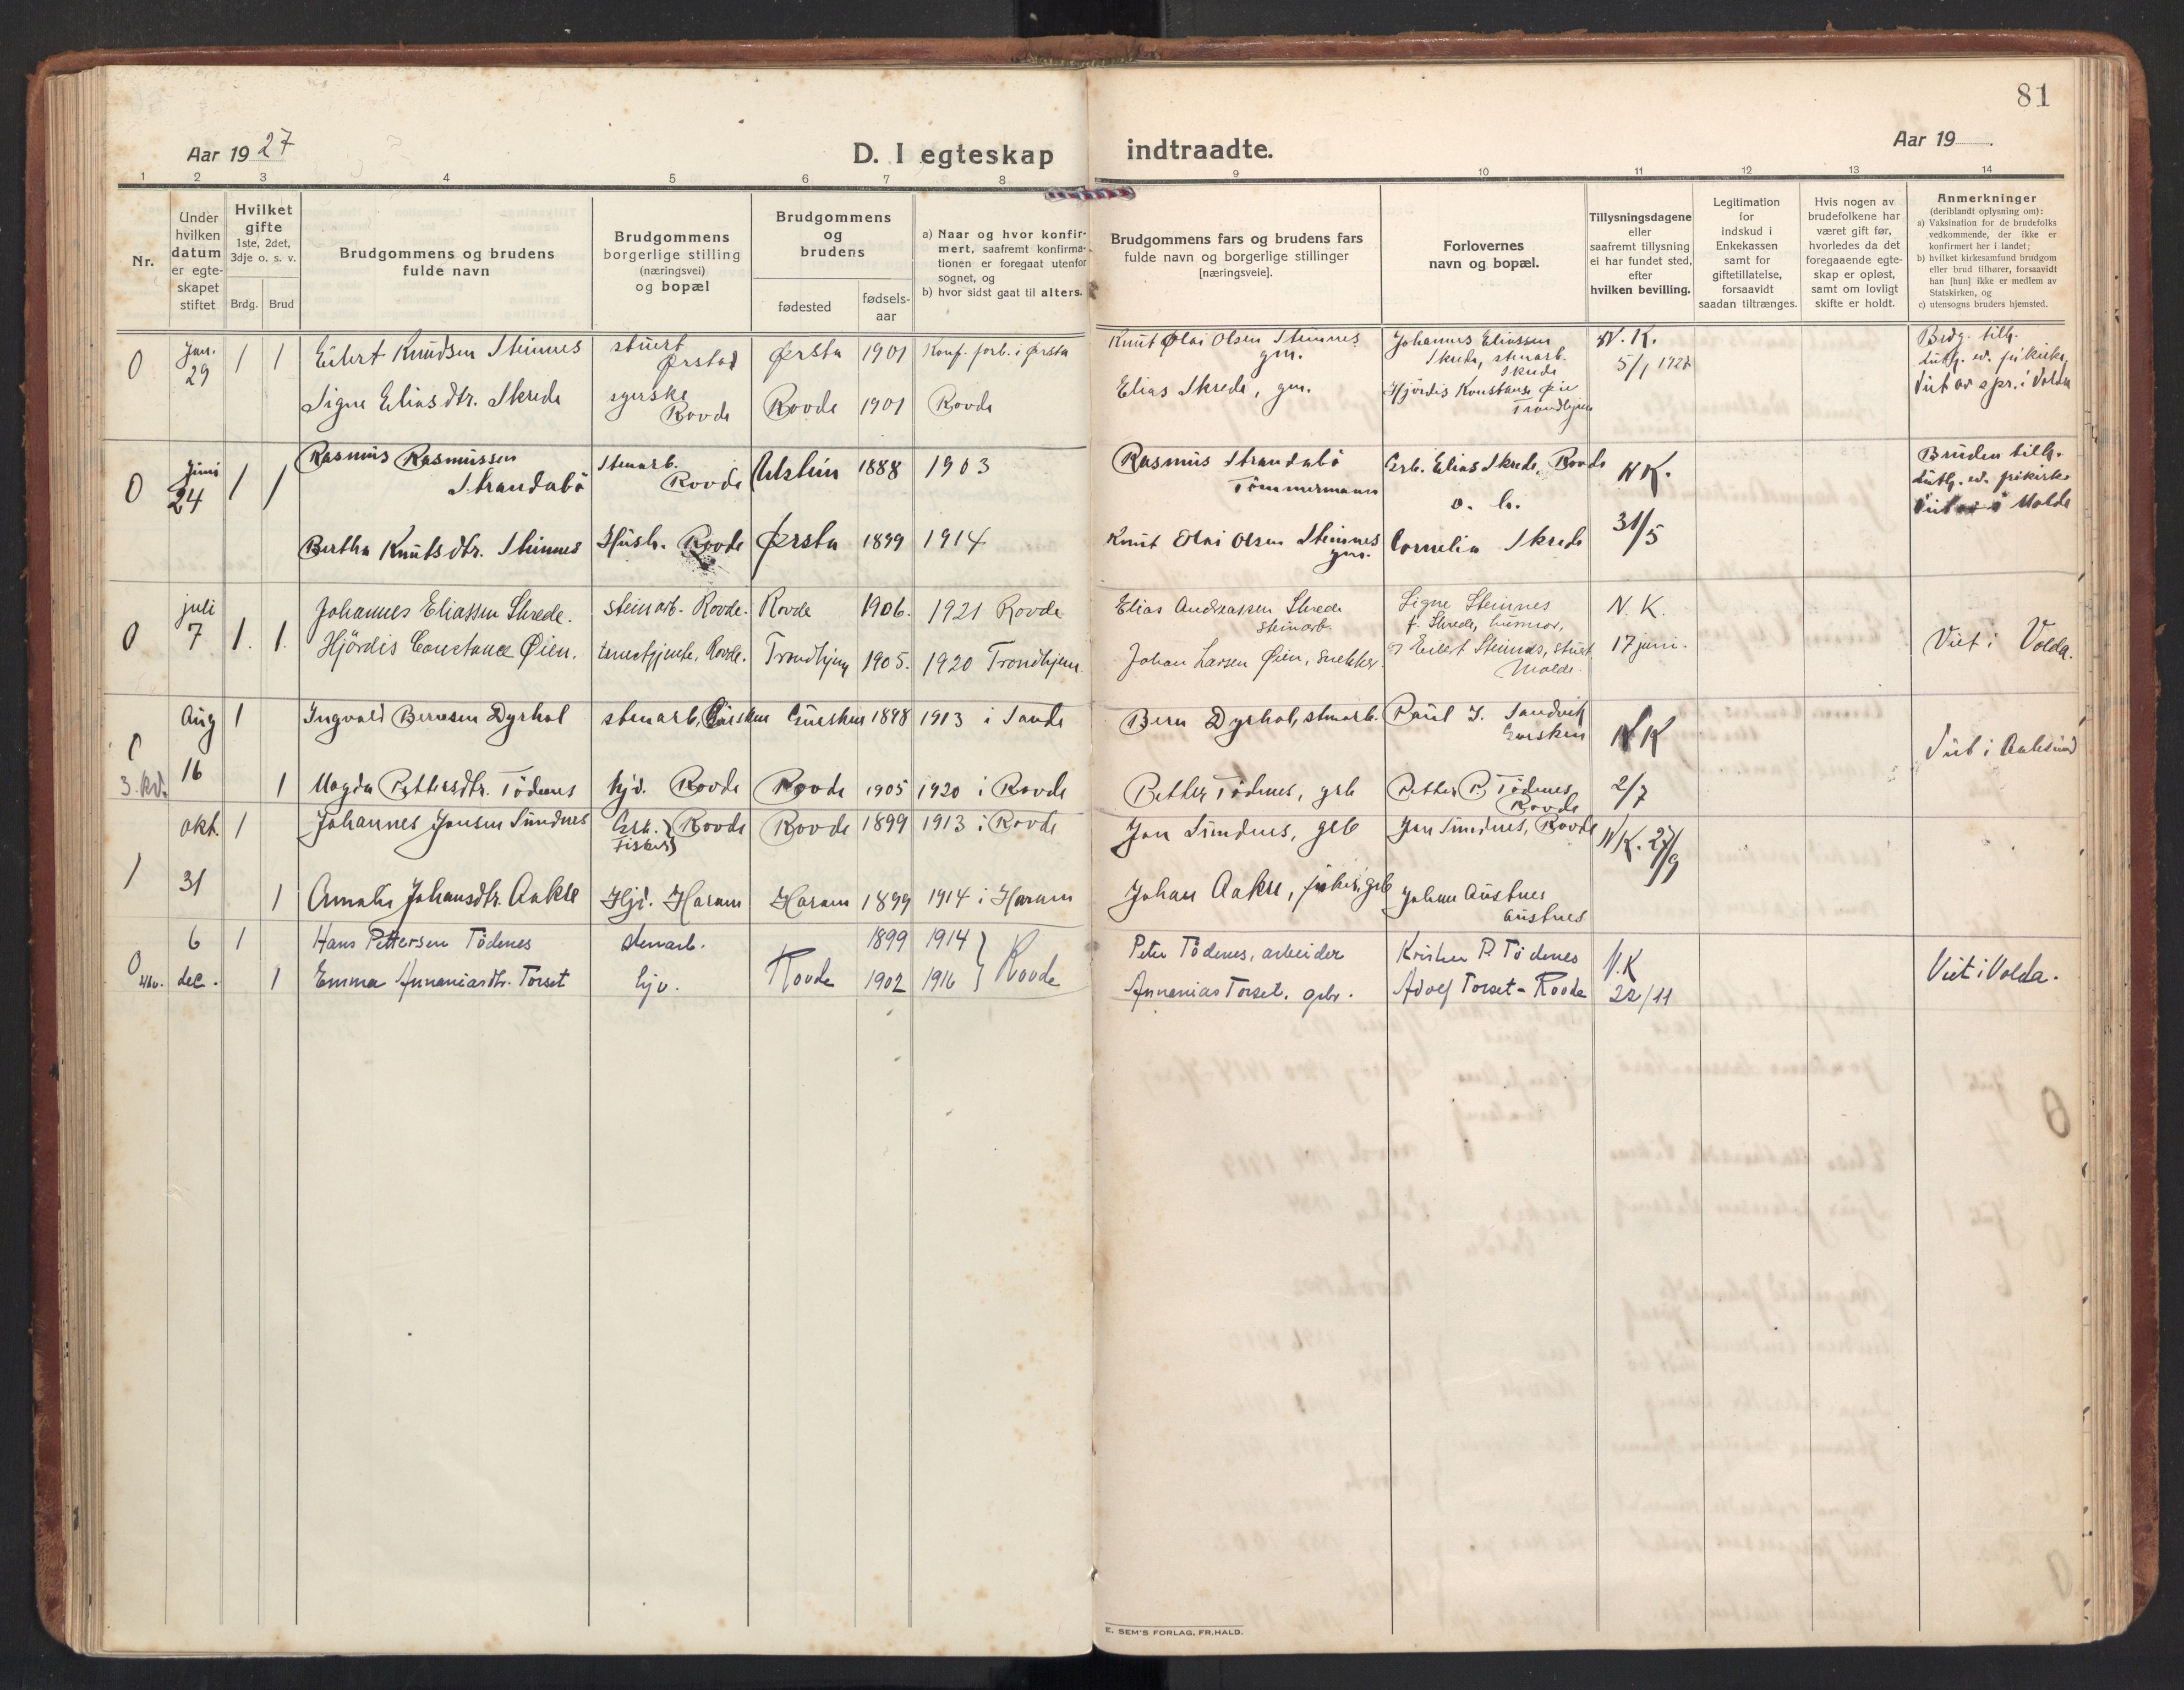 81
Aar 1927
D. I egteskap indtraadte.
Aar 19
1 2 3 4 5 6 7 8 9 10 11 12 13 14
Nr.
Under hvilken datum er egteskapet stiftet
Hvilket gifte
1ste, 2det, 3dje o. s. v.
Brdg. Brud
Brudgommens og brudens fulde navn
Brudgommens borgerlige stilling (næringsvei) og bopæl
Brudgommens og brudens
fødested
fødsels-aar
a) Naar og hvor konfirmert, saafremt konfirmationen er foregaat utenfor sognet, og
b) hvor sidst gaat til alters.
Brudgommens fars og brudens fars fulde navn og borgerlige stillinger [næringsveie].
Forlovernes navn og bopæl.
Tillysningsdagene eller saafremt tillysning ei har fundet sted, efter hvilken bevilling.
Legitimation for indskud i Enkekassen samt for giftetillatelse, forsaavidt saadan tiltrænges.
Hvis nogen av brudefolkene har været gift før, hvorledes da det foregaaende egteskap er opløst, samt om lovligt skifte er holdt.
Anmerkninger
(deriblandt oplysning om):
a) Vaksination for de brudefolks vedkommende, der ikke er konfirmert her i landet;
b) hvilket kirkesamfund brudgom eller brud tilhører, forsaavidt han [hun] ikke er medlem av Statskirken, og
c) utensogns bruders hjemsted.
0 Jan. 29 1 1 Eilert Knudsen Steinnes stuert Ørstad Ørsta 1901 Konf. forb. i Ørsta Knut Olai Olsen Steinnes gm. Johannes Eliassen Skrede, stenarb. Skrede N. K. 5/1 Brdg. tilh. luth. ev. frikirke
Signe Eliasdtr. Skrede syerske Rovde Rovde 1901 Rovde Elias Skrede, gm. Hjördis Konstanse Øie Trondhjem Viet av spr. i Volda
0 Juni 24 1 1 Rasmus Rasmussen Strandabö Stenarb. Rovde Ulstein 1888 1903 Rasmus Strandabö Tömmermann Grb. Elias Skrede, Rovde o. h. N K. Bruden tilh. luth. ev. frikirke
Bertha Knutsdtr. Steinnes Hush. Rovde Ørsta 1899 1914 Knut Olai Olsen Steinnes gm. Cornelia Skrede 31/5
0 juli 7 1. 1. Johannes Eliassen Skrede. steinarb. Rovde. Rovde 1906. 1921 Rovde Elias Andreassen Skrede steinarb. Signe Steinnes f. Skrede, husmor, N. K.
Hjördis Constance Øien. tenestjente, Rovde. Trondhjem 1905. 1920 Trondhjem. Johan Larsen Øien, snekker. og Eilert Steinnes, stuert Molde. 17 juni. Viet i Volda.
Aug 1 Ingvald Bernsen Dyrhol stenarb, Gursken Gursken 1898 1913 i Sande Bern Dyrhol, stenarb. Paul J. Sandvik Gursken N K Viet i Aalesund
3. kv. 16 1 Magda Pettersdtr. Tödenes hjv. Rovde Rovde 1905 1920 i Rovde Petter Tödenes, grb Petter P. Tödenes, Rovde 2/7
okt. 1 Johannes Jonsen Sundnes Grb. Fisker Rovde Rovde 1899 1913 i Rovde Jon Sundnes, grb Jon Sundnes, Rovde N K. 27/9
1 31 1 Amalie Johansdtr. Aakre Hjv. Haram Haram 1899 1914 i Haram Johan Aakre, fisker, grb Johan Austnes Austnes
0 6 1 Hans Pettersen Tödenes stenarb. 1899 1914 Peter Tödenes, arbeider Kristen P. Tödenes N.K
4kv. dec. 1 Emma Annaniasdtr. Torset hjv. Rovde 1902 1916 Rovde Annanias Torset, gbr. Adolf Torset - Rovde 22/11 Viet i Volda.
E. SEM'S FORLAG, FR.HALD.